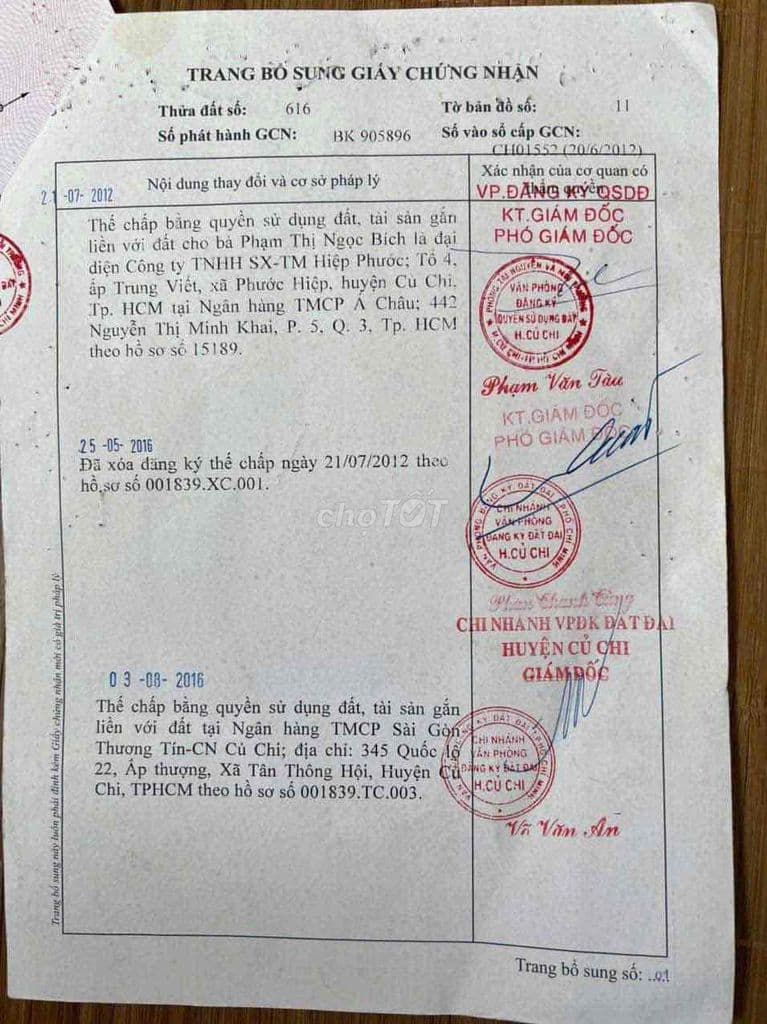 TRANG BỔ SUNG GIẤY CHỨNG NHẬN
Thửa đất số: 616
Tờ bản đồ số: 11
Số phát hành GCN: BK 905896
Số vào sổ cấp GCN:
CH01552 (20/6/2012)
Nội dung thay đổi và cơ sở pháp lý
Xác nhận của cơ quan có
thẩm quyền
21-07-2012
Thế chấp bằng quyền sử dụng đất, tài sản gắn
liền với đất cho bà Phạm Thị Ngọc Bích là đại
diện Công ty TNHH SX-TM Hiệp Phước; Tổ 4,
ấp Trung Viết, xã Phước Hiệp, huyện Củ Chi,
Tp. HCM tại Ngân hàng TMCP Á Châu; 442
Nguyễn Thị Minh Khai, P. 5, Q. 3, Tp. HCM
theo hồ sơ số 15189.
VP.ĐĂNG KÝ QSDĐ
KT.GIÁM ĐỐC
PHÓ GIÁM ĐỐC
PHÒNG TÀI NGUYÊN VÀ MÔI TRƯỜNG
VĂN PHÒNG
ĐĂNG KÝ
QUYỀN SỬ DỤNG ĐẤT
H.CỦ CHI
H.CỦ CHI-TP HỒ CHÍ MINH
Phạm Văn Tàu
25-05-2016
Đã xóa đăng ký thế chấp ngày 21/07/2012 theo
hồ sơ số 001839.XC.001.
KT.GIÁM ĐỐC
PHÓ GIÁM ĐỐC
VĂN PHÒNG ĐĂNG KÝ ĐẤT ĐAI
CHI NHÁNH
VĂN PHÒNG
ĐĂNG KÝ ĐẤT ĐAI
H.CỦ CHI
choTỐT
03-08-2016
Thế chấp bằng quyền sử dụng đất, tài sản gắn
liền với đất tại Ngân hàng TMCP Sài Gòn
Thương Tín-CN Củ Chi; địa chỉ: 345 Quốc lộ
22, Ấp thượng, Xã Tân Thông Hội, Huyện Củ
Chi, TPHCM theo hồ sơ số 001839.TC.003.
CHI NHÁNH VPĐK ĐẤT ĐAI
HUYỆN CỦ CHI
GIÁM ĐỐC
CHI NHÁNH
VĂN PHÒNG
ĐĂNG KÝ ĐẤT ĐAI
H.CỦ CHI
Võ Văn Ấn
Trang bổ sung này luôn phải đính kèm Giấy chứng nhận mới có giá trị pháp lý
Trang bổ sung số: ..01